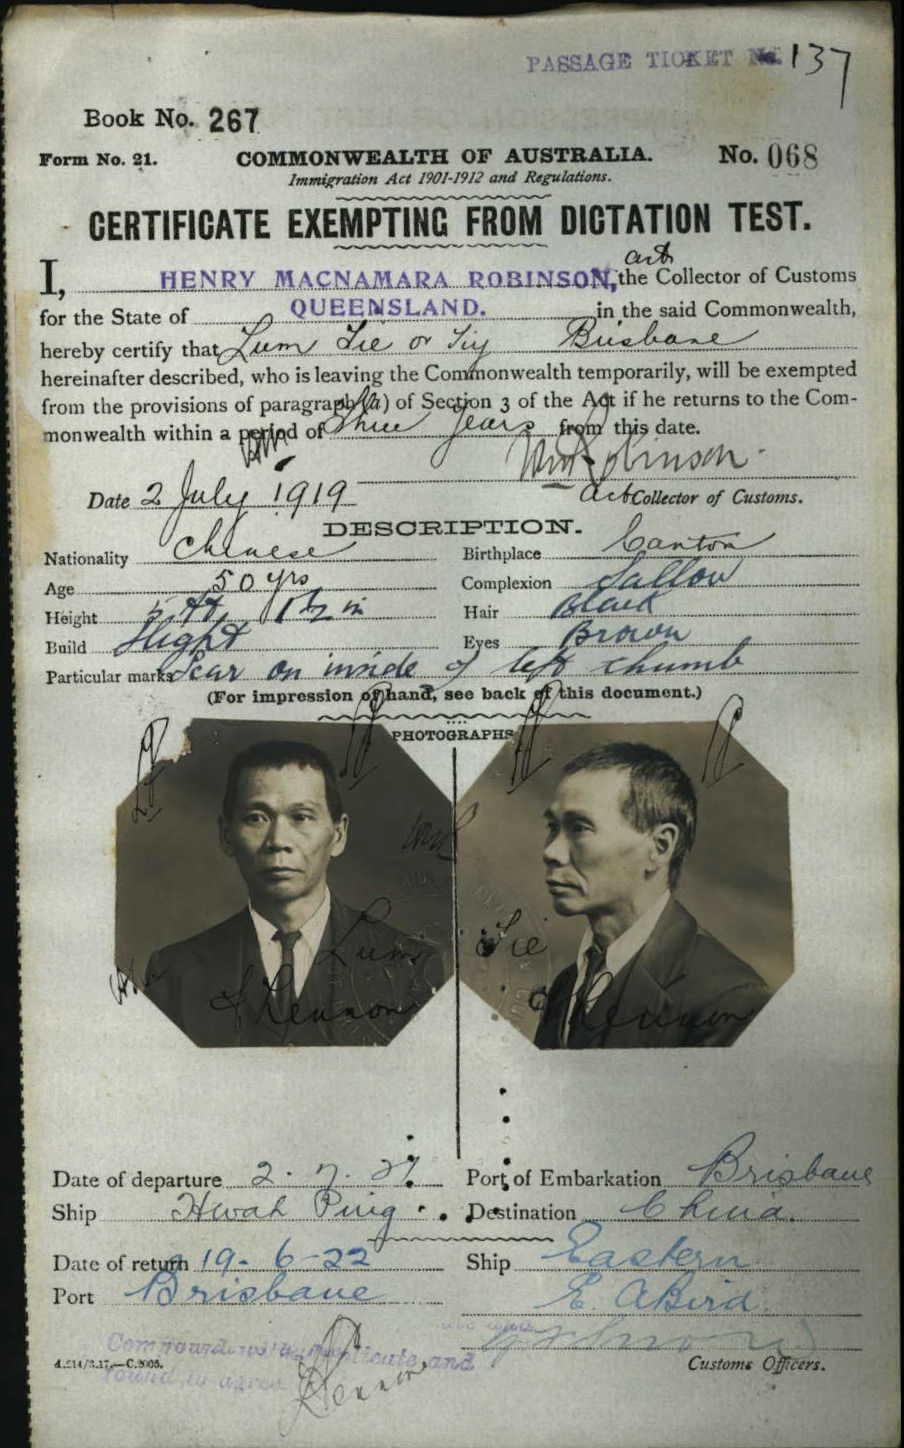 PASSAGE TICKET No. 137
Book No. 267
Form No. 21. COMMONWEALTH OF AUSTRALIA. No. 068
Immigration Act 1901-1912 and Regulations.
CERTIFICATE EXEMPTING FROM DICTATION TEST.
act
I, HENRY MACNAMARA ROBINSON, the Collector of Customs
for the State of QUEENSLAND. in the said Commonwealth,
hereby certify that Lum Sie or Siy Brisbane
hereinafter described, who is leaving the Commonwealth temporarily, will be exempted
from the provisions of paragraph (a) of Section 3 of the Act if he returns to the Com-
monwealth within a period of Three Years from this date.
Robinson
Date 2 July 1919 act Collector of Customs.
DESCRIPTION.
Nationality Chinese Birthplace Canton
Age 50 yrs Complexion Sallow
Height 5 ft 1½ in Hair Black
Build Slight Eyes Brown
Particular marks Scar on inside of left thumb
(For impression of hand, see back of this document.)
PHOTOGRAPHS
Lum Sie
J Lennon J Lennon
Date of departure 2. 7. Port of Embarkation Brisbane
Ship Hwah Ping Destination China.
Date of return 19-6-22 Ship Eastern
Port Brisbane E. A Bird
Compared with duplicate and
found to agree
Lennon
4.514/3.17.—C.8005. Customs Officers.